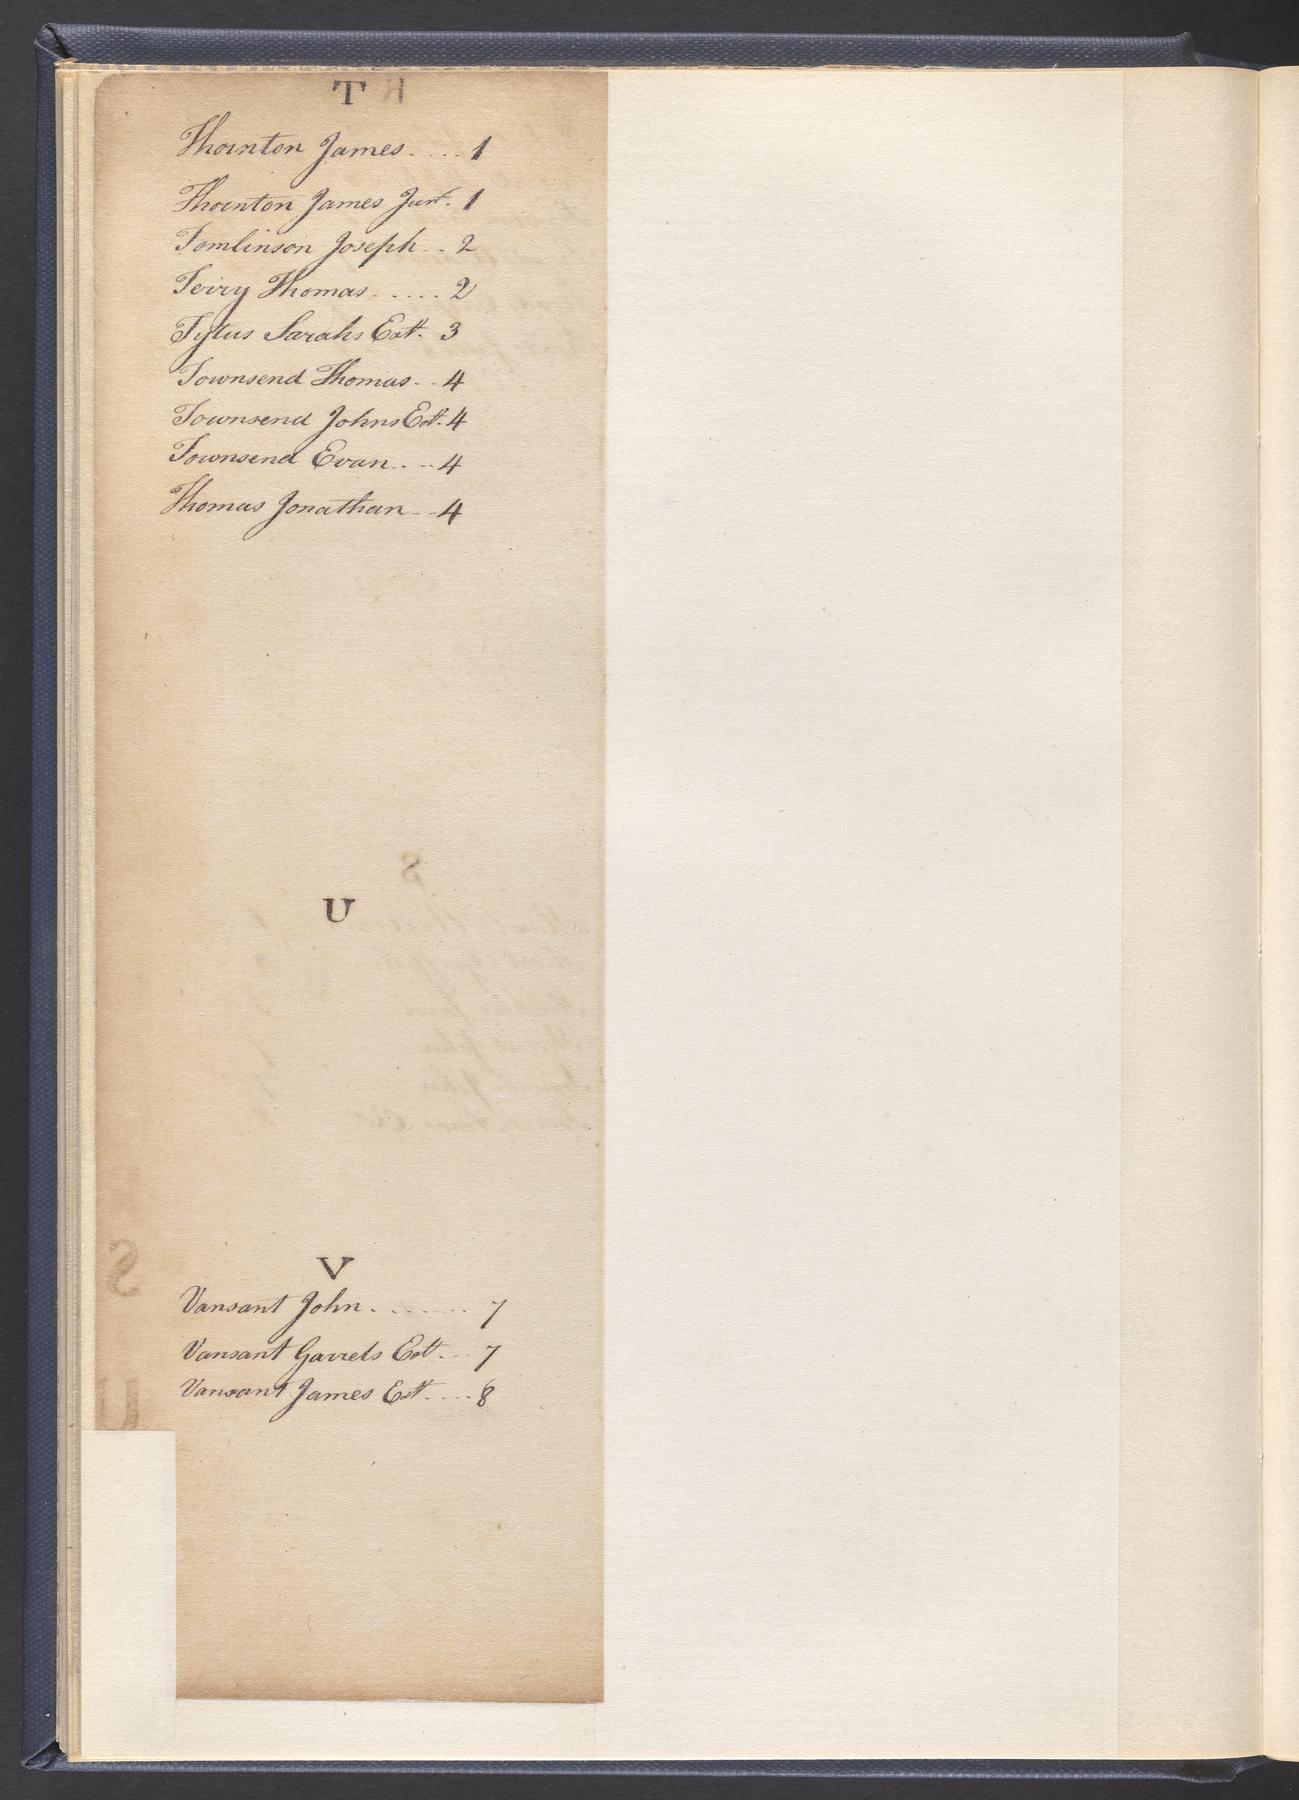 T
Thornton James.....1
Thornton James Junr. 1
Tomlinson Joseph.. 2
Terry Thomas......2
Tytus Sarahs Estt. 3
Townsend Thomas.. 4
Townsend Johns Estt. 4
Townsend Evan....4
Thomas Jonathan.. 4
U
V
Vansant John........7
Vansant Garrets Estt...7
Vansant James Estt....8